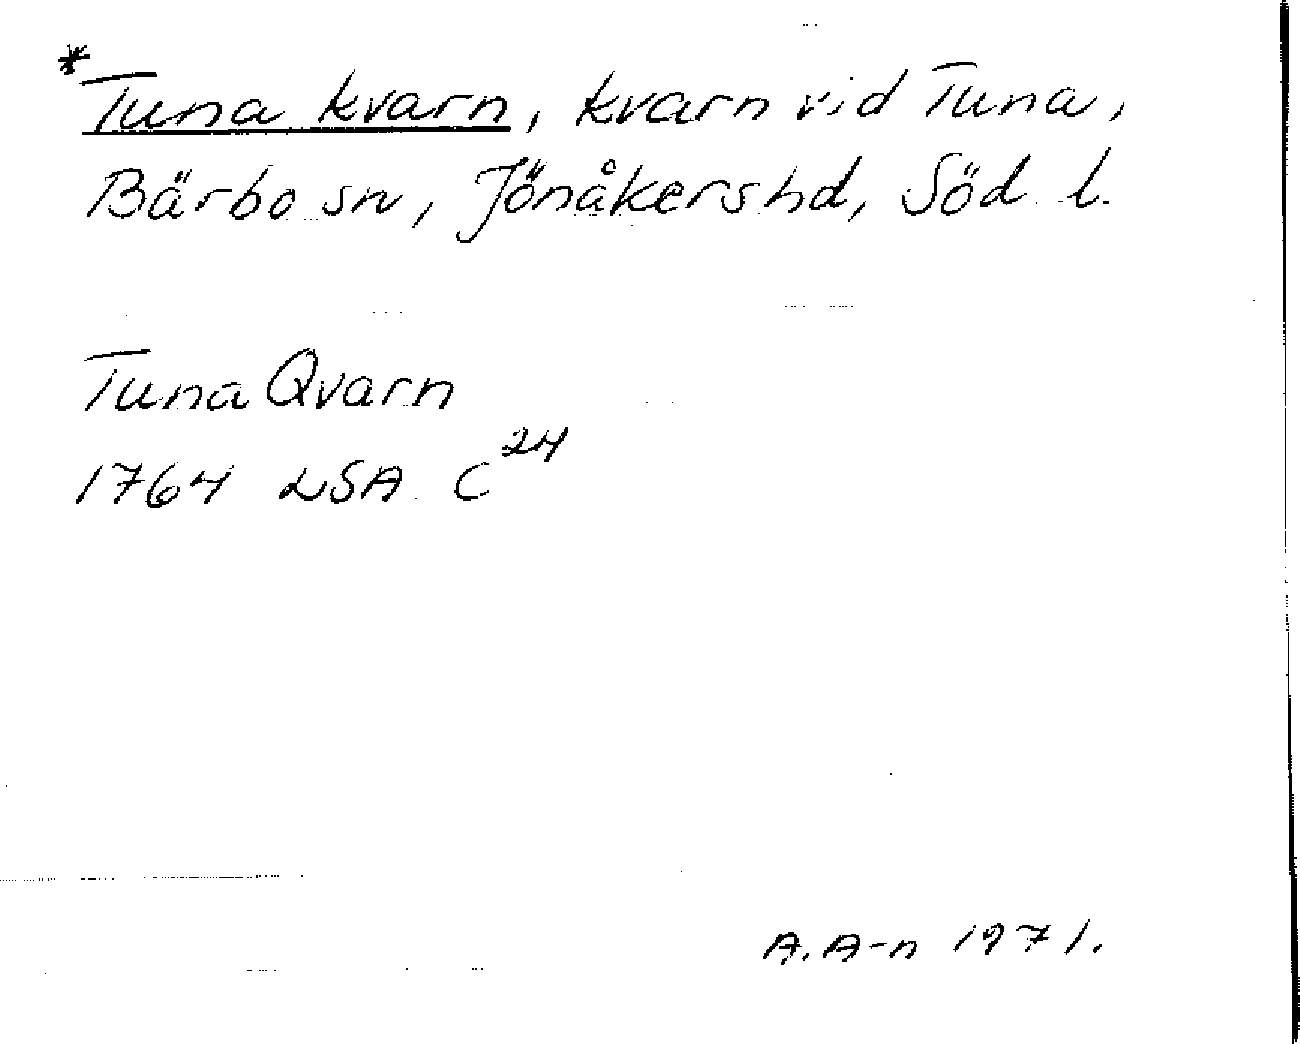 *Tuna kvarn, kvarn vid Tuna,
Bärbo sn, Jönåkers hd, Söd l.
Tuna Qvarn
1764 LSA C²⁴
A. A-n 1971.